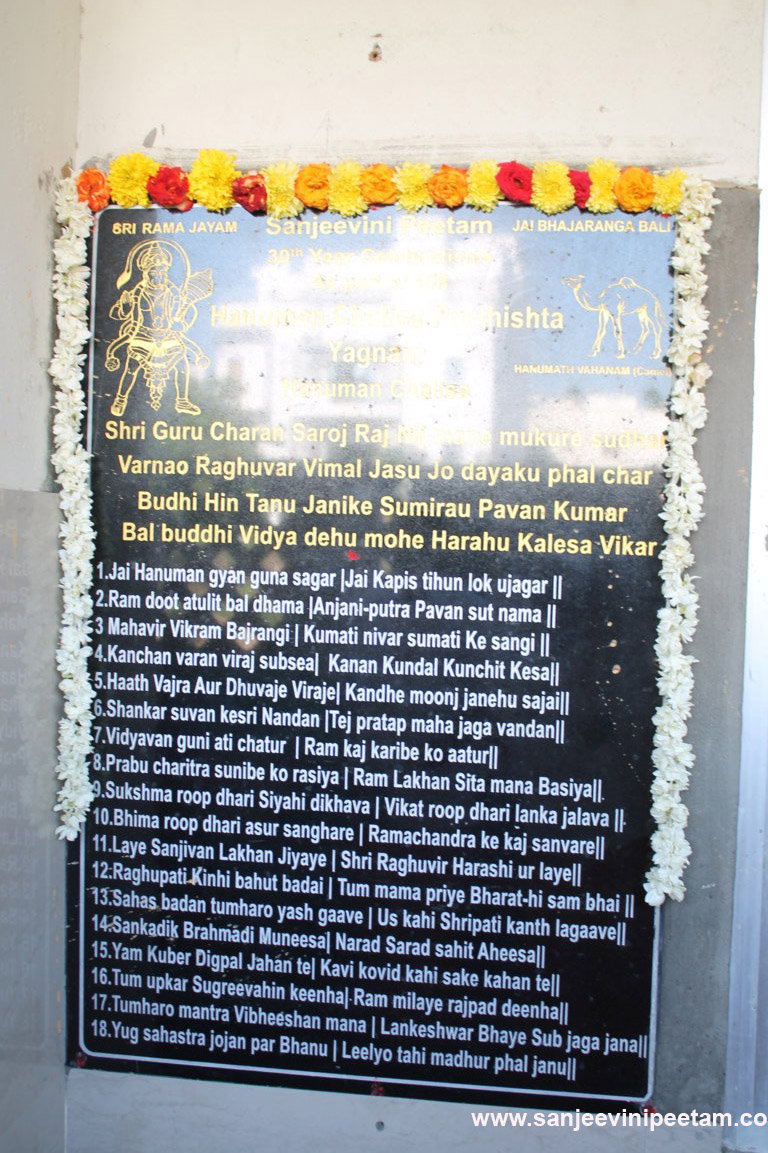 SRI RAMA JAYAM
Sanjeevini Peetam
JAI BHAJARANGA BALI
30th Year
As part of the
Hanuman
Yagnam
HANUMATH VAHANAM (Camel)
Hanuman Chalisa
Shri Guru Charan Saroj Raj Nij mane mukure sudhar
Varnao Raghuvar Vimal Jasu Jo dayaku phal char
Budhi Hin Tanu Janike Sumirau Pavan Kumar
Bal buddhi Vidya dehu mohe Harahu Kalesa Vikar
1.Jai Hanuman gyan guna sagar |Jai Kapis tihun lok ujagar ||
2.Ram doot atulit bal dhama |Anjani-putra Pavan sut nama ||
3 Mahavir Vikram Bajrangi | Kumati nivar sumati Ke sangi ||
4.Kanchan varan viraj subsea| Kanan Kundal Kunchit Kesa||
5.Haath Vajra Aur Dhuvaje Viraje| Kandhe moonj janehu sajai||
6.Shankar suvan kesri Nandan |Tej pratap maha jaga vandan||
7.Vidyavan guni ati chatur | Ram kaj karibe ko aatur||
8.Prabu charitra sunibe ko rasiya | Ram Lakhan Sita mana Basiya||
9.Sukshma roop dhari Siyahi dikhava | Vikat roop dhari lanka jalava ||
10.Bhima roop dhari asur sanghare | Ramachandra ke kaj sanvare||
11.Laye Sanjivan Lakhan Jiyaye | Shri Raghuvir Harashi ur laye||
12.Raghupati Kinhi bahut badai | Tum mama priye Bharat-hi sam bhai ||
13.Sahas badan tumharo yash gaave | Us kahi Shripati kanth lagaave||
14.Sankadik Brahmadi Muneesa| Narad Sarad sahit Aheesa||
15.Yam Kuber Digpal Jahan te| Kavi kovid kahi sake kahan te||
16.Tum upkar Sugreevahin keenha| Ram milaye rajpad deenha||
17.Tumharo mantra Vibheeshan mana | Lankeshwar Bhaye Sub jaga jana||
18.Yug sahastra jojan par Bhanu | Leelyo tahi madhur phal janu||
www.sanjeevinipeetam.co